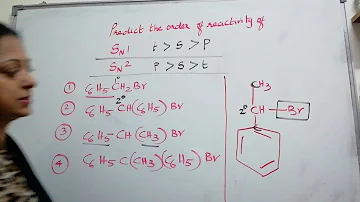 Predict the order of reactivity of
SN1 t > S > P
SN2 P > S > t
① C6H5 CH2 Br 1°
② C6H5 CH (C6H5) Br 2°
③ C6H5 - CH (CH3) Br
④ C6H5 C (CH3) (C6H5) Br
CH3
2° CH - Br